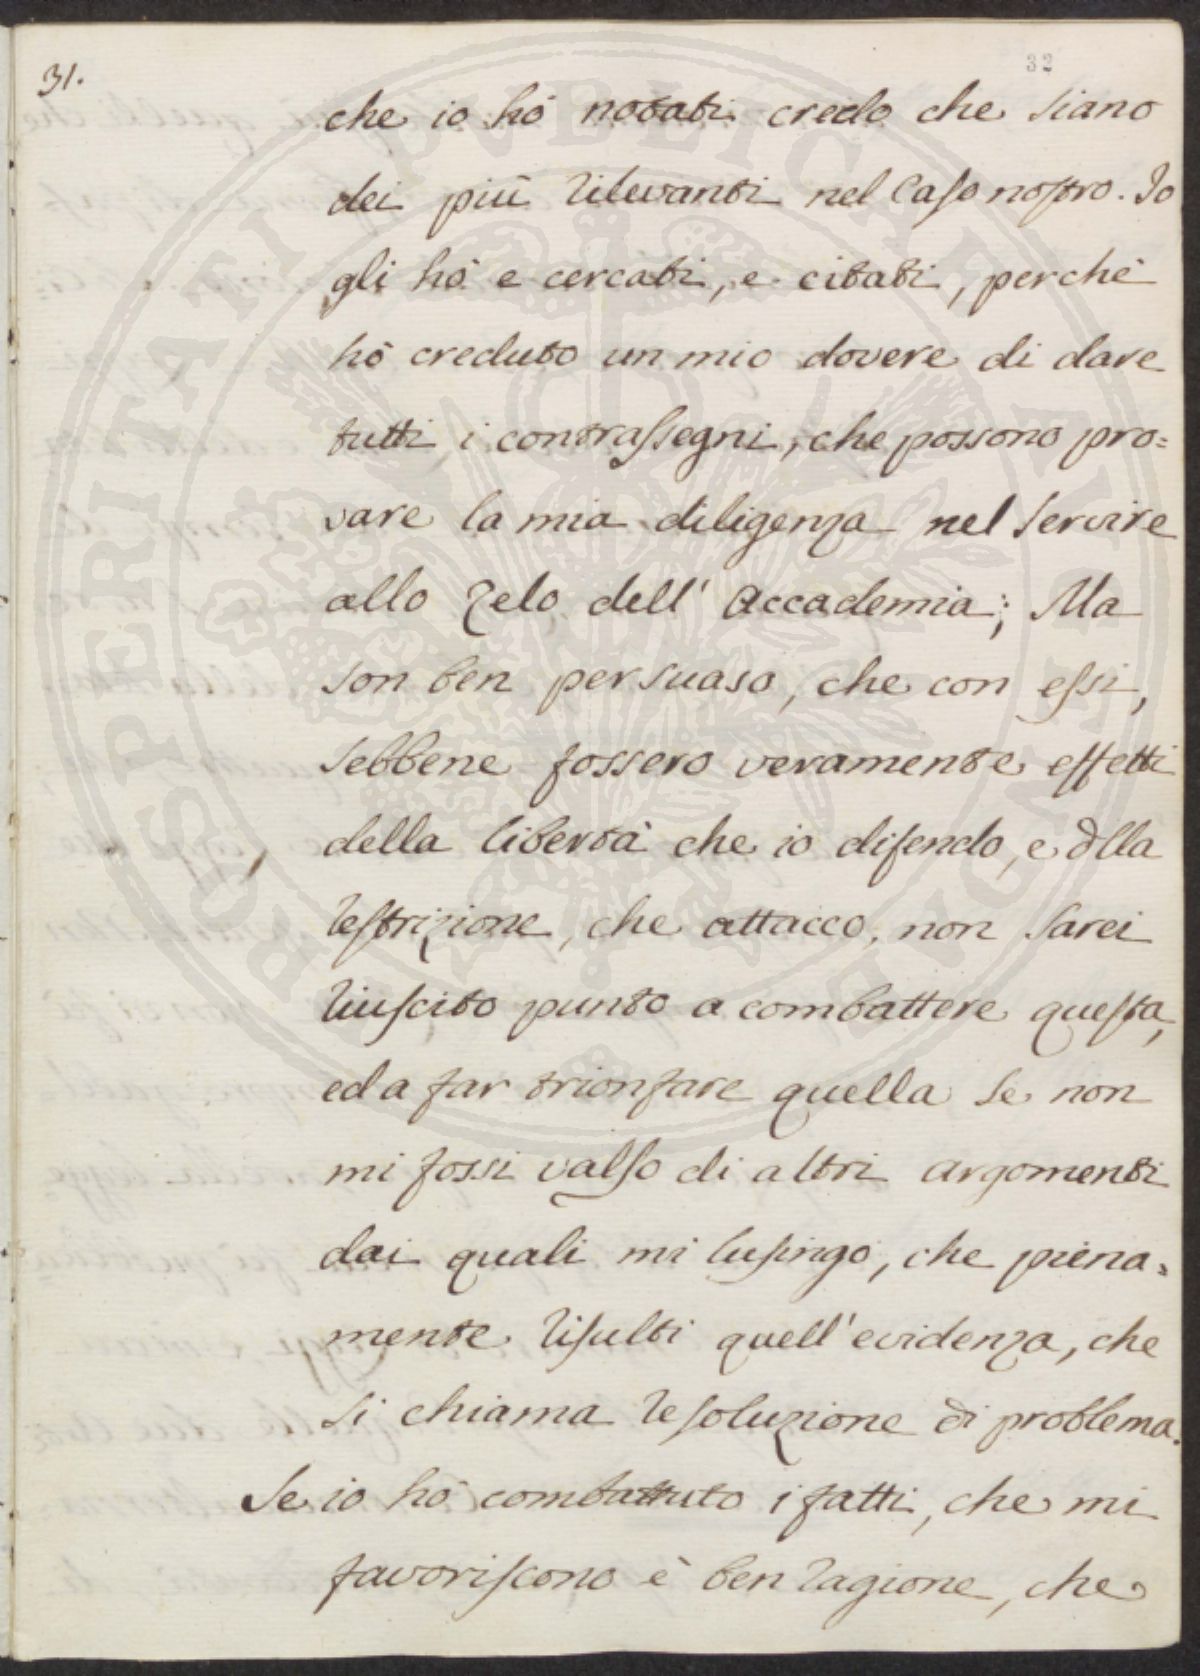 31.
32
che io hò notati credo che siano
dei più rilevanti nel Caso nostro. Io
gli hò e cercati, e citati, perchè
hò creduto un mio dovere di dare
tutti i contrassegni, che possono pro=
vare la mia diligenza nel servire
allo zelo dell' Accademia; Ma
son ben persuaso, che con essi,
sebbene fossero veramente effetti
della libertà che io difendo, e dlla
restrizione, che attacco, non sarei
riuscito punto a combattere questa,
ed a far trionfare quella se non
mi fossi valso di altri argomenti
dai quali mi lusingo, che piena=
mente risulti quell'evidenza, che
si chiama resoluzione di problema.
Se io hò combattuto i fatti, che mi
favoriscono è ben ragione, che
PROSPERITATI PVBLICAE AVGENDAE